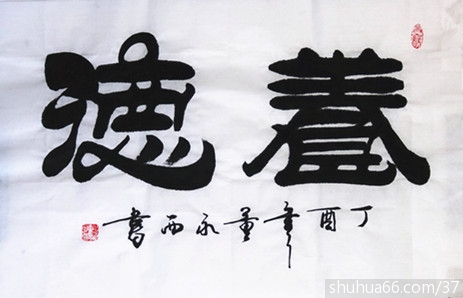 養德
丁酉年董永西書
shuhua66.com/37